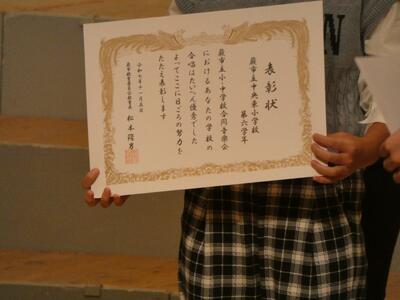 表彰状
蕨市立中央東小学校
第六学年
蕨市立小・中学校合同音楽会
におけるあなたの学校の
合唱はたいへん優秀でした
よってここに日ごろの努力を
たたえ表彰します
令和七年十一月五日
蕨市教育委員会教育長 松本隆男
W